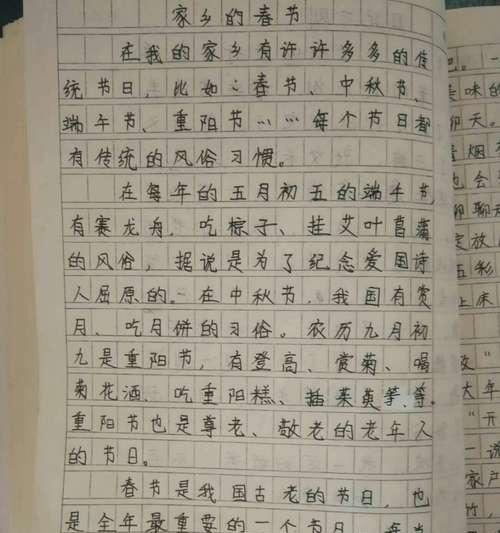 家乡的春节
在我的家乡有许许多多的传
统节日，比如：春节、中秋节、
端午节、重阳节……每个节日都
有传统的风俗习惯。
在每年的五月初五的端午节
有赛龙舟，吃棕子、挂艾叶菖蒲
的风俗，据说是为了纪念爱国诗
人屈原的。在中秋节，我国有赏
月、吃月饼的习俗。农历九月初
九是重阳节，有登高、赏菊、喝
菊花酒、吃重阳糕、插茱萸等等。
重阳节也是尊老、敬老的老年人
的节日。
春节是我国古老的节日，也
是全年最重要的一个节日，每当
吧。一
美味的
聊天。
也会
聊聊天
定放
五彩
上床
放"
大年
"开
一说
家户
竹，